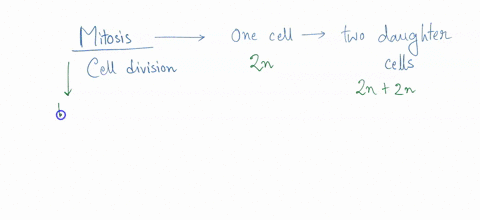 Mitosis → One cell → two daughter
Cell division 2n cells
2n + 2n